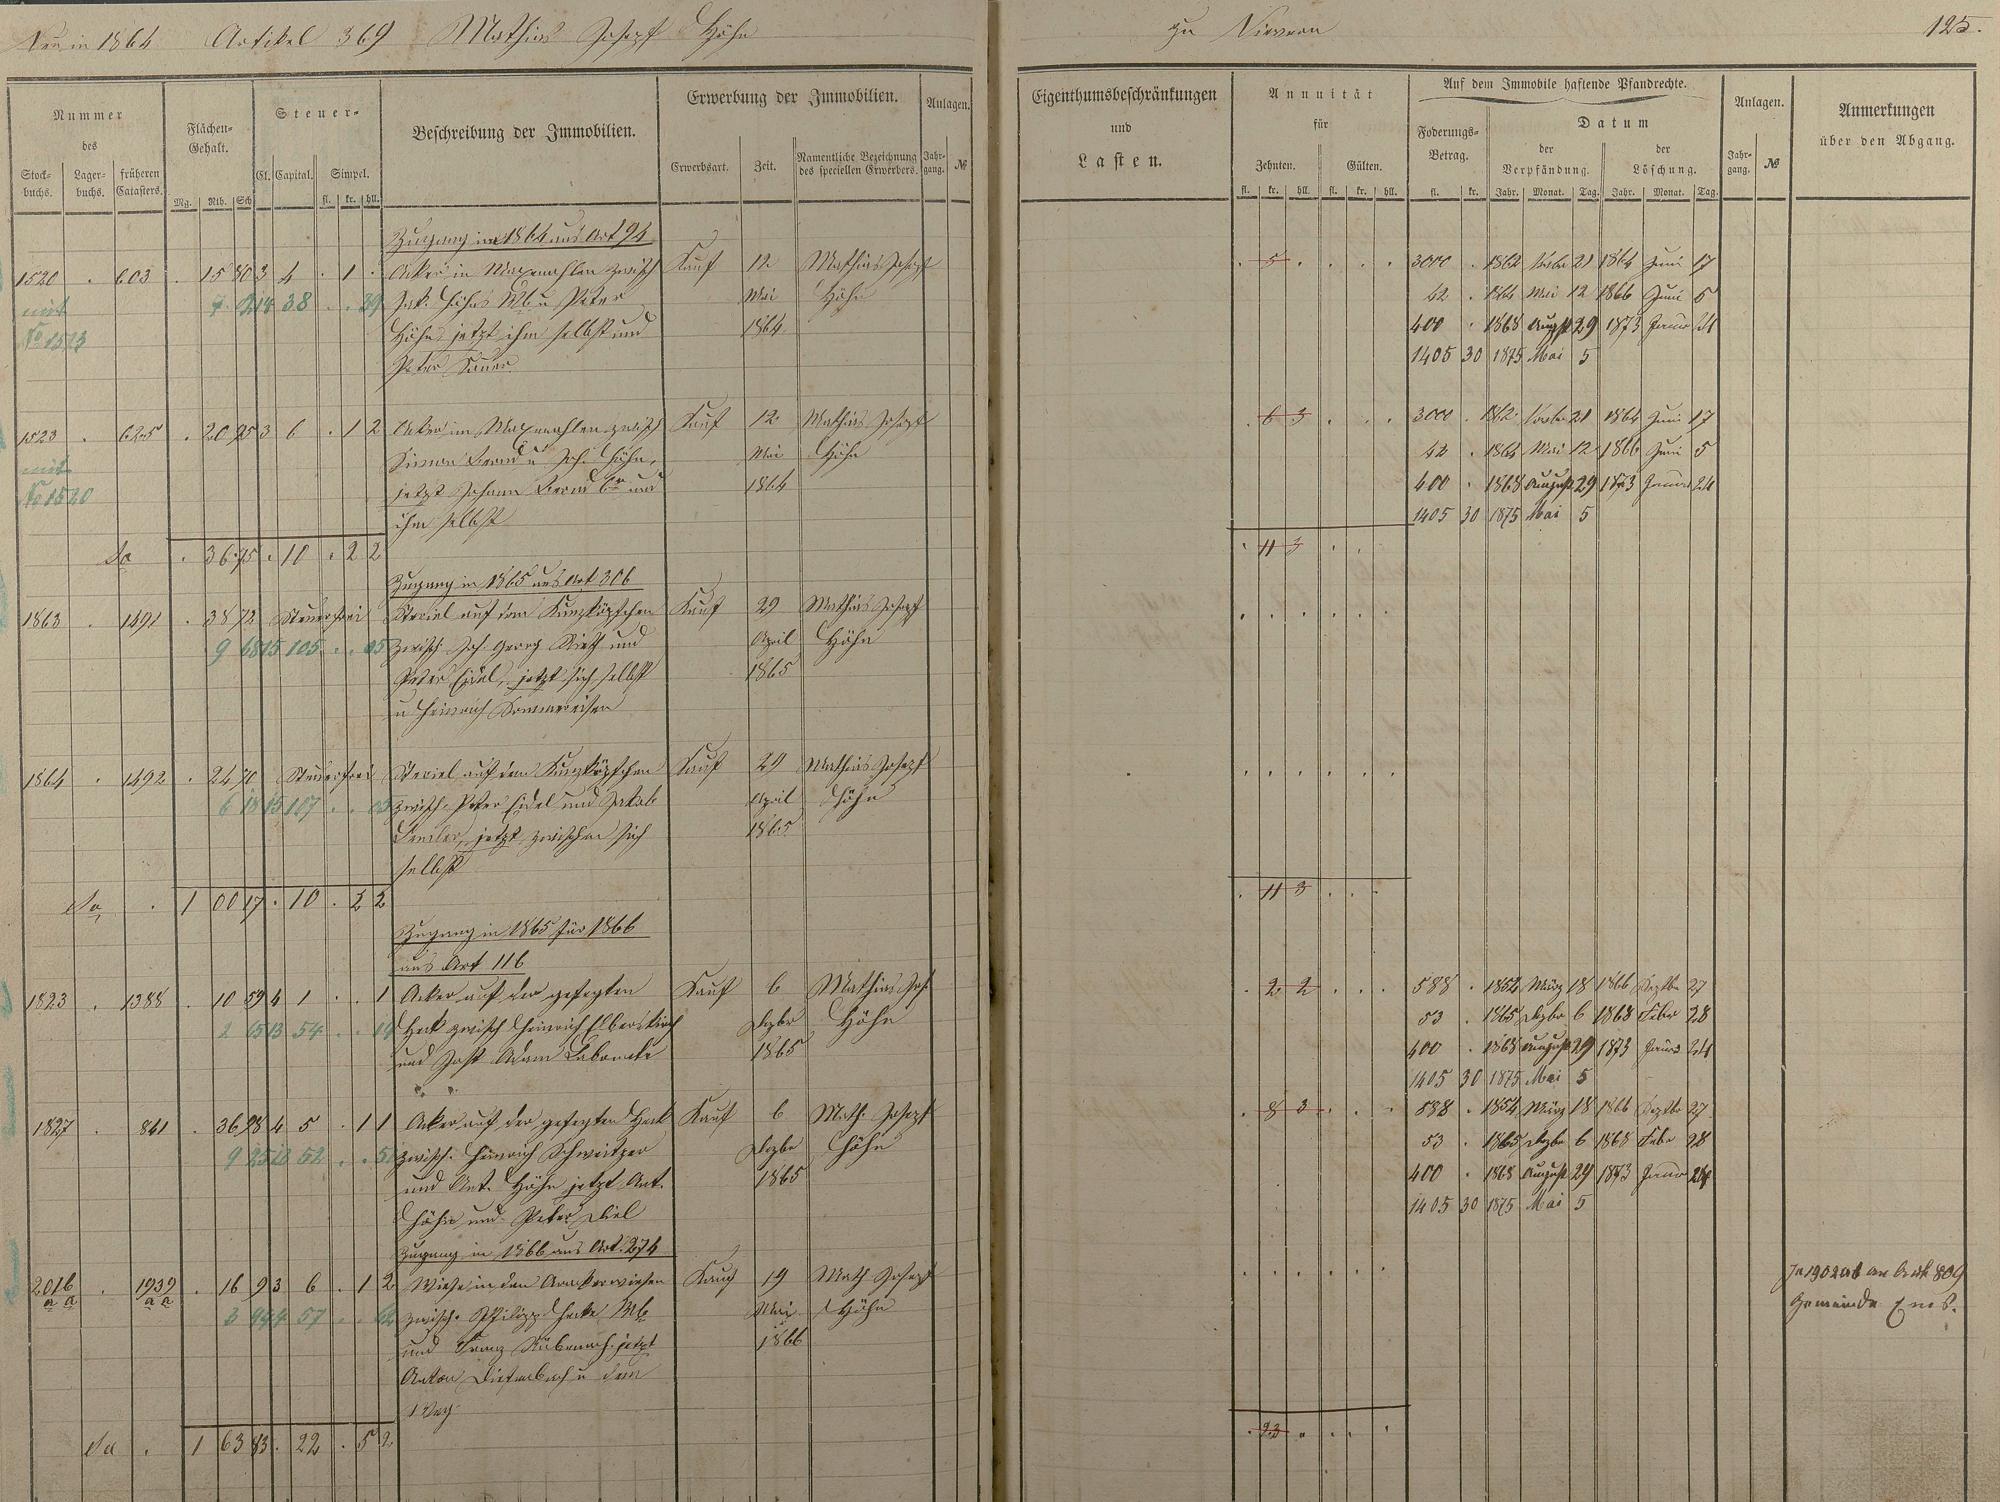 Neu in 1864 Artikel 369 Mathias Josef Höhn
zu Nievern
125.
Nummer
des
Stock-
buchs.
Lager-
buchs.
früheren
Catasters.
Flächen-
Gehalt.
Mg. Rth. Sch
Steuer-
Cl. Capital. Simpel.
fl. kr. hll.
Beschreibung der Immobilien.
Erwerbung der Immobilien.
Erwerbsart. Zeit.
Namentliche Bezeichnung
des speciellen Erwerbers.
Anlagen.
Jahr-
gang. №
Eigenthumsbeschränkungen
und
Lasten.
Annuität
für
Zehnten. Gülten.
fl. kr. hll. fl. kr. hll.
Auf dem Immobile haftende Pfandrechte.
Foderungs-
Betrag.
fl. kr.
Datum
der
Verpfändung.
der
Löschung.
Jahr. Monat. Tag. Jahr. Monat. Tag.
Anlagen.
Jahr-
gang. №
Anmerkungen
über den Abgang.
Zugang in 1864 aus Art 94
1520 . 603 . 15 80 3 4 . 1 . Acker in zwisch Kauf 12 Mathias Josef . 5 . . . . 3000 . 1862 21 1864 Juni 17
mit 38 . . 39 Jak. Höhns Wb u Peter Mai Höhn 42 . 1864 Mai 12 1866 Juni 5
No 1523 Höhn, jetzt ihm selbst und 1864 400 . 1868 August 29 1873 Januar 24
Peter 1405 30 1875 Mai 5
1523 . 625 . 20 95 3 6 . 1 2 Acker im zwisch Kauf 12 Mathias Josef . 6 3 . . . 3000 . 1862 21 1864 Juni 17
mit Simon u Joh. Höhn, Mai Höhn 42 . 1864 Mai 12 1866 Juni 5
No 1520 jetzt Johann und 1864 400 . 1868 August 29 1873 Januar 24
ihm selbst 1405 30 1875 Mai 5
Sa . 36 75 . 10 . 2 2 . 11 3 . .
Zugang in 1865 aus Art 306
1863 . 1491 . 38 72 Steuerfrei auf dem Kauf 29 Mathias Josef
9 68 15 105 . . 05 zwisch. Joh. Georg und April Höhn
Peter jetzt sich selbst 1865
u Heinrich
1864 . 1492 . 24 70 Steuerfrei auf dem Kauf 29 Mathias Josef
6 18 15 107 . . 05 zwisch. Peter und Jakob April Höhn
jetzt zwischen sich 1865
selbst
Sa . 1 00 17 . 10 . 2 2 . 11 3 . .
Zugang in 1865 für 1866
aus Art 116
1823 . 1388 . 10 59 4 1 . . 1 Acker auf der gefegten Kauf 6 Mathias Jos. . 2 2 . . . 588 . 1854 März 18 1866 Septbr 27
2 65 13 54 . . 14 Heck zwisch Heinrich Elberskirch Dezbr Höhn 53 . 1865 Dezbr 6 1868 Febr 28
und Jost Adam 1865 400 . 1868 August 29 1873 Januar 24
1405 30 1875 Mai 5
1827 . 841 . 36 98 4 5 . 1 1 Acker auf der gefegten Heck Kauf 6 Math. Josef . 8 3 . . . 588 . 1854 März 18 1866 Septbr 27
9 25 13 52 . . 51 zwisch. Heinrich Schweitzer Dezbr Höhn 53 . 1865 Dezbr 6 1868 Febr 28
und Ant. Höhn jetzt Ant. 1865 400 . 1868 August 29 1873 Januar 24
Höhn und Peter Diel 1405 30 1875 Mai 5
Zugang in 1866 aus Art. 274
2016 . 1939 . 16 9 3 6 . 1 2 Wiese in den Kauf 19 Math Josef In 1902 ab an Artk 809
aa aa 57 zwisch. Philipp Wb Mai Höhn Gemeinde Ems.
und Franz jetzt 1866
Anton Diefenbach u dem
Weg.
Sa . 1 63 83 . 22 . 5 2 . 23 . . . .